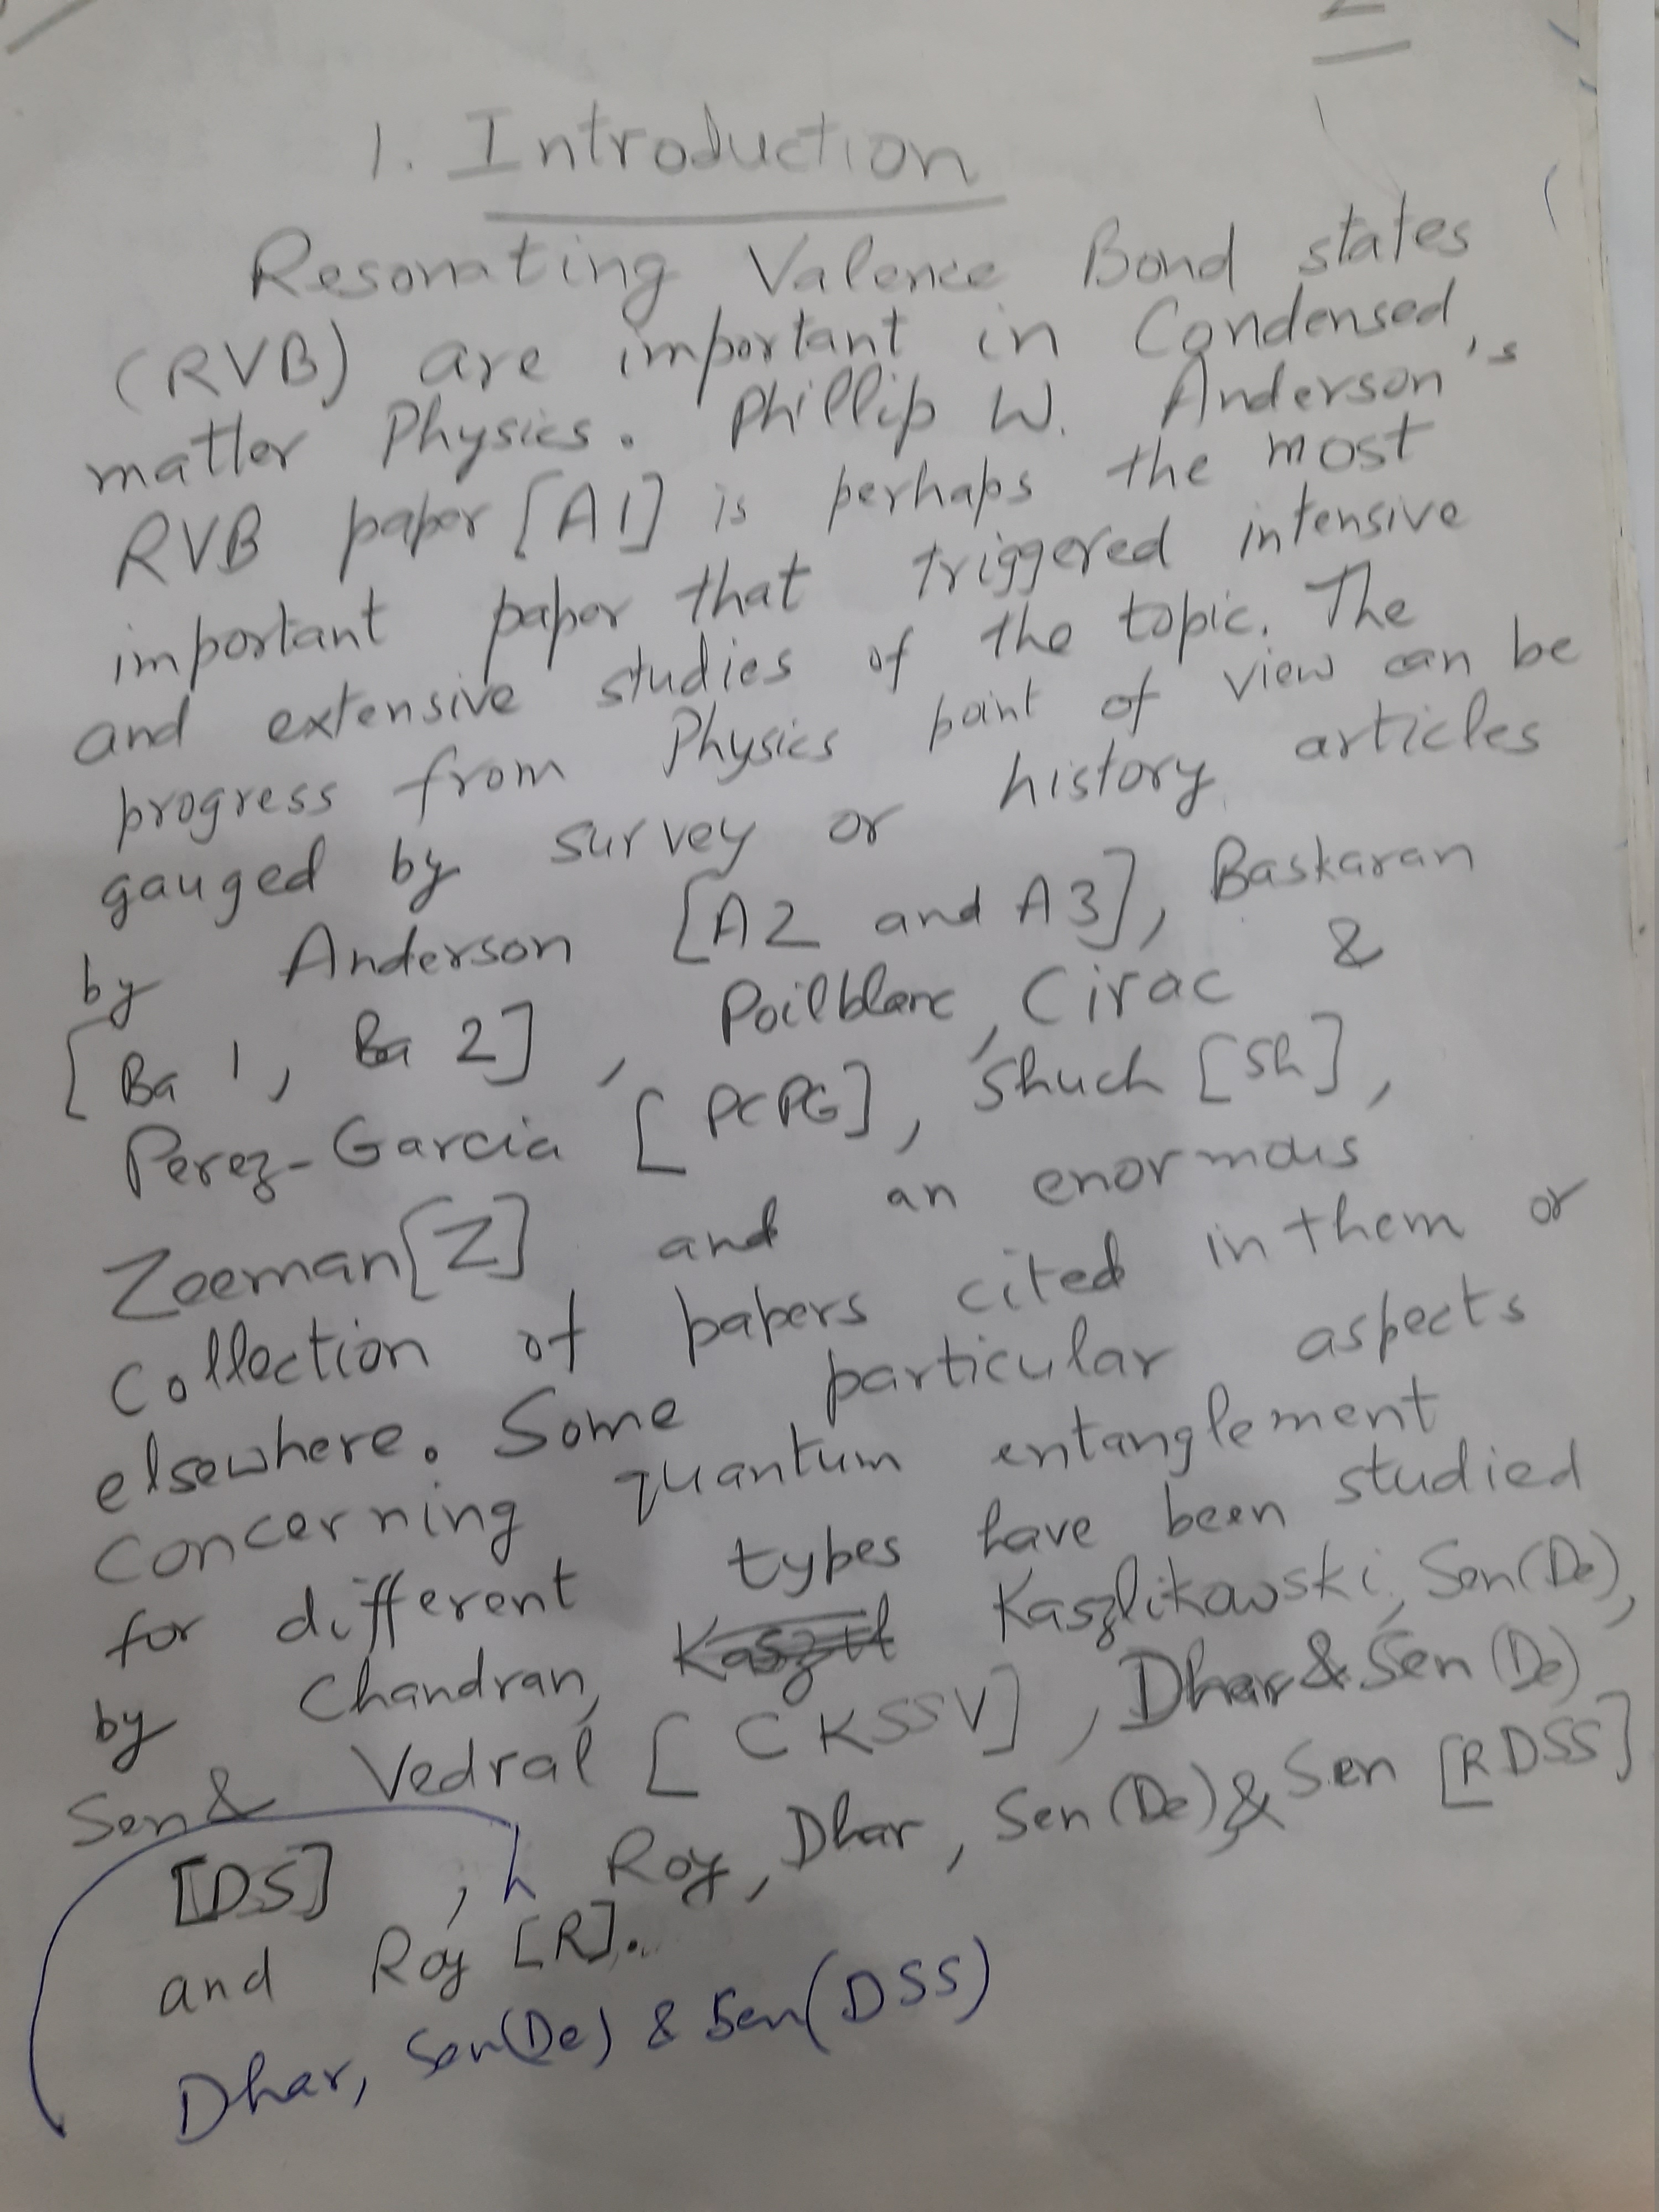 1. Introduction
Resonating Valence Bond states
(RVB) are important in Condensed
matter Physics. Phillip W. Anderson's
RVB paper [A1] is perhaps the most
important paper that triggered intensive
and extensive studies of the topic. The
progress from Physics point of view can be
gauged by survey or history articles
by Anderson [A2 and A3], Baskaran
[Ba 1, Ba 2], Poilblanc, Cirac &
Perez-Garcia [PCPG], Shuch [Sh],
Zeeman [Z] and an enormous
Collection of papers cited in them or
elsewhere. Some particular aspects
concerning quantum entanglement
for different types have been studied
by Chandran, Kaszlikowski, Sen(De),
Sen & Vedral [CKSSV], Dhar & Sen (De)
[DS], Roy, Dhar, Sen (De) & Sen [RDSS]
and Roy [R].
Dhar, Sen(De) & Sen (DSS)